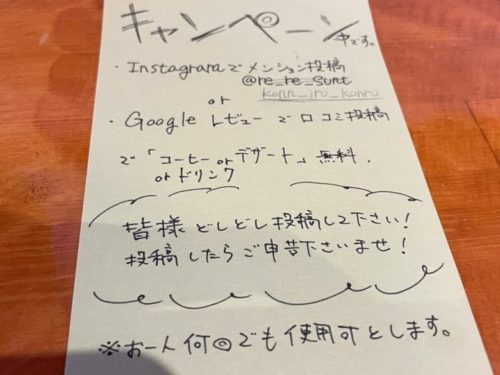 キャンペーン中です。
・Instagramでメンション投稿
@re_re_sunt
konn_iro_konro
or
・Googleレビューで口コミ投稿
で「コーヒー or デザート」無料.
or ドリンク
皆様どしどし投稿して下さい!
投稿したらご申告下さいませ!
※お一人何回でも使用可とします。